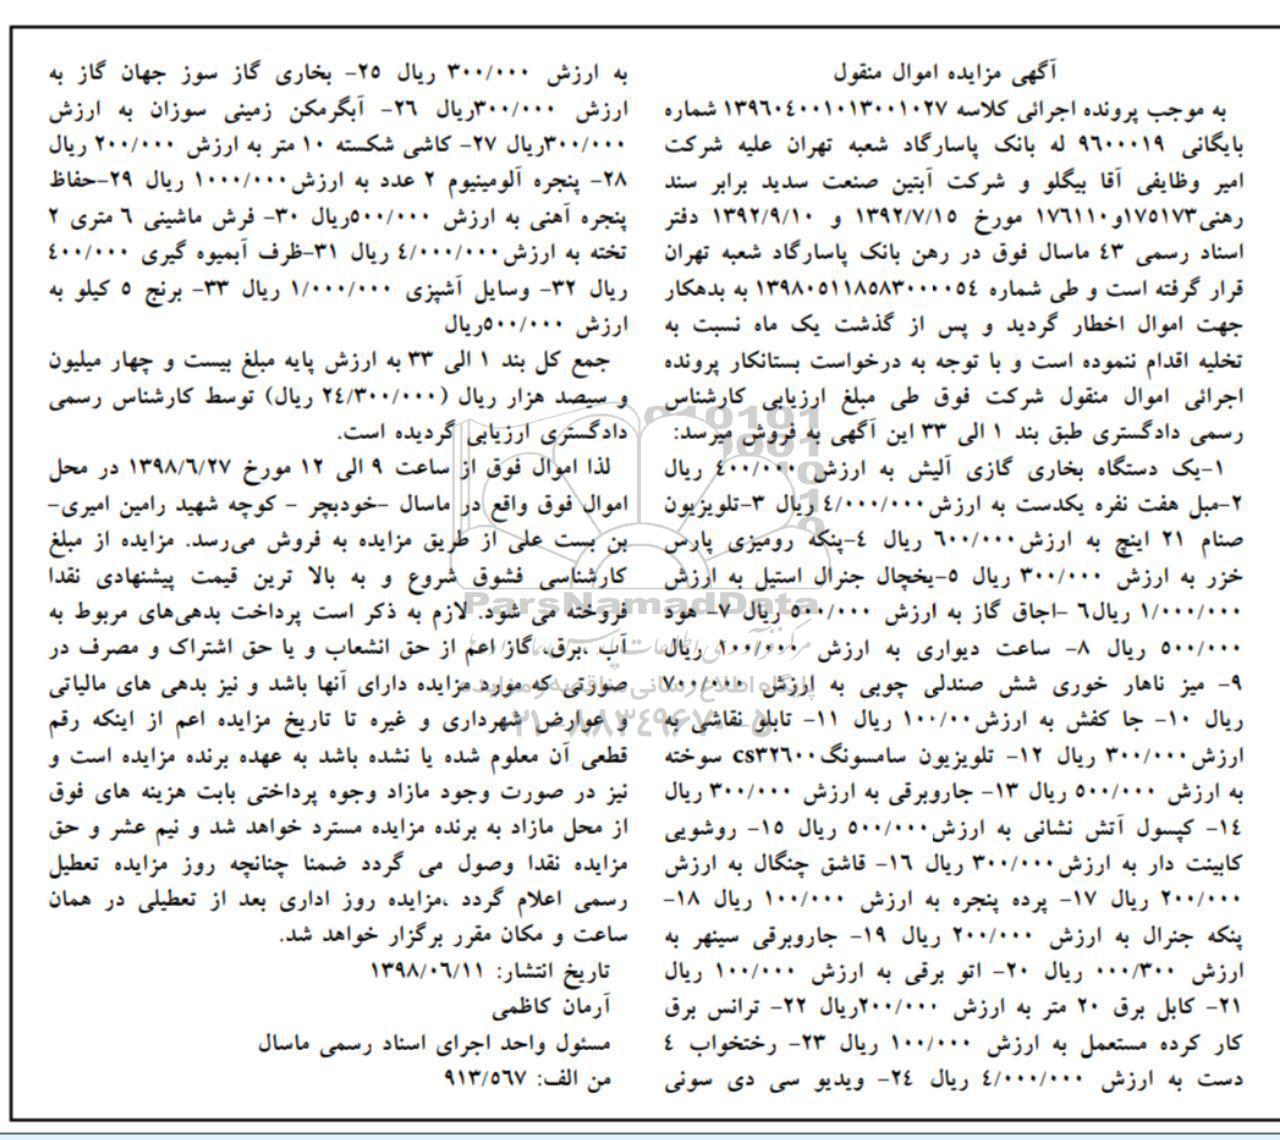 آگهی مزایده اموال منقول
به موجب پرونده اجرائی کلاسه ۱۳۹۶۰٤۰۰۱۰۱۳۰۰۱۰۲۷ شماره
بایگانی ۹۶۰۰۰۱۹ له بانک پاسارگاد شعبه تهران علیه شرکت
امیر وظایفی آقا بیگلو و شرکت آبتین صنعت سدید برابر سند
رهنی۱۷۵۱۷۳و۱۷۶۱۱۰ مورخ ۱۳۹۲/۷/۱۵ و ۱۳۹۲/۹/۱۰ دفتر
اسناد رسمی ٤۳ ماسال فوق در رهن بانک پاسارگاد شعبه تهران
قرار گرفته است و طی شماره ۱۳۹۸۰۵۱۱۸۵۸۳۰۰۰۰۵٤ به بدهکار
جهت اموال اخطار گردید و پس از گذشت یک ماه نسبت به
تخلیه اقدام ننموده است و با توجه به درخواست بستانکار پرونده
اجرائی اموال منقول شرکت فوق طی مبلغ ارزیابی کارشناس
رسمی دادگستری طبق بند ۱ الی ۳۳ این آگهی به فروش میرسد:
۱-یک دستگاه بخاری گازی آلیش به ارزش ٤۰۰/۰۰۰ ریال
۲-مبل هفت نفره یکدست به ارزش٤/۰۰۰/۰۰۰ ریال ۳-تلویزیون
صنام ۲۱ اینچ به ارزش۶۰۰/۰۰۰ ریال ٤-پنکه رومیزی پارس
خزر به ارزش ۳۰۰/۰۰۰ ریال ۵-یخچال جنرال استیل به ارزش
۱/۰۰۰/۰۰۰ ریال۶ -اجاق گاز به ارزش ۵۰۰/۰۰۰ ریال ۷- هود
۵۰۰/۰۰۰ ریال ۸- ساعت دیواری به ارزش ۱۰۰/۰۰۰ ریال
۹- میز ناهار خوری شش صندلی چوبی به ارزش ۷۰۰/۰۰۰
ریال ۱۰- جا کفش به ارزش۱۰۰/۰۰ ریال ۱۱- تابلو نقاشی به
ارزش۳۰۰/۰۰۰ ریال ۱۲- تلویزیون سامسونگ cs۳۲۶۰۰ سوخته
به ارزش ۵۰۰/۰۰۰ ریال ۱۳- جاروبرقی به ارزش ۳۰۰/۰۰۰ ریال
۱٤- کپسول آتش نشانی به ارزش۵۰۰/۰۰۰ ریال ۱۵- روشویی
کابینت دار به ارزش۳۰۰/۰۰۰ ریال ۱۶- قاشق چنگال به ارزش
۲۰۰/۰۰۰ ریال ۱۷- پرده پنجره به ارزش ۱۰۰/۰۰۰ ریال ۱۸-
پنکه جنرال به ارزش ۲۰۰/۰۰۰ ریال ۱۹- جاروبرقی سینهر به
ارزش ۰۰۰/۳۰۰ ریال ۲۰- اتو برقی به ارزش ۱۰۰/۰۰۰ ریال
۲۱- کابل برق ۲۰ متر به ارزش ۲۰۰/۰۰۰ریال ۲۲- ترانس برق
کار کرده مستعمل به ارزش ۱۰۰/۰۰۰ ریال ۲۳- رختخواب ٤
دست به ارزش ٤/۰۰۰/۰۰۰ ریال ۲٤- ویدیو سی دی سونی
به ارزش ۳۰۰/۰۰۰ ریال ۲۵- بخاری گاز سوز جهان گاز به
ارزش ۳۰۰/۰۰۰ریال ۲۶- آبگرمکن زمینی سوزان به ارزش
۳۰۰/۰۰۰ریال ۲۷- کاشی شکسته ۱۰ متر به ارزش ۲۰۰/۰۰۰ ریال
۲۸- پنجره آلومینیوم ۲ عدد به ارزش۱۰۰۰/۰۰۰ ریال ۲۹-حفاظ
پنجره آهنی به ارزش ۵۰۰/۰۰۰ریال ۳۰- فرش ماشینی ۶ متری ۲
تخته به ارزش٤/۰۰۰/۰۰۰ ریال ۳۱-ظرف آبمیوه گیری ٤۰۰/۰۰۰
ریال ۳۲- وسایل آشپزی ۱/۰۰۰/۰۰۰ ریال ۳۳- برنج ۵ کیلو به
ارزش ۵۰۰/۰۰۰ریال
جمع کل بند ۱ الی ۳۳ به ارزش پایه مبلغ بیست و چهار میلیون
و سیصد هزار ریال (۲٤/۳۰۰/۰۰۰ ریال) توسط کارشناس رسمی
دادگستری ارزیابی گردیده است.
لذا اموال فوق از ساعت ۹ الی ۱۲ مورخ ۱۳۹۸/۶/۲۷ در محل
اموال فوق واقع در ماسال -خودبچر - کوچه شهید رامین امیری-
بن بست علی از طریق مزایده به فروش می‌رسد. مزایده از مبلغ
کارشناسی فشوق شروع و به بالا ترین قیمت پیشنهادی نقدا
فروخته می شود. لازم به ذکر است پرداخت بدهی‌های مربوط به
آب ،برق، گاز اعم از حق انشعاب و یا حق اشتراک و مصرف در
صورتی که مورد مزایده دارای آنها باشد و نیز بدهی های مالیاتی
و عوارض شهرداری و غیره تا تاریخ مزایده اعم از اینکه رقم
قطعی آن معلوم شده یا نشده باشد به عهده برنده مزایده است و
نیز در صورت وجود مازاد وجوه پرداختی بابت هزینه های فوق
از محل مازاد به برنده مزایده مسترد خواهد شد و نیم عشر و حق
مزایده نقدا وصول می گردد ضمنا چنانچه روز مزایده تعطیل
رسمی اعلام گردد ،مزایده روز اداری بعد از تعطیلی در همان
ساعت و مکان مقرر برگزار خواهد شد.
تاریخ انتشار: ۱۳۹۸/۰۶/۱۱
آرمان کاظمی
مسئول واحد اجرای اسناد رسمی ماسال
من الف: ۹۱۳/۵۶۷
ParsNamadData
پایگاه اطلاع رسانی مناقصه و مزایده
۰۲۱-۸۸۳٤۹۶۷۰-۵